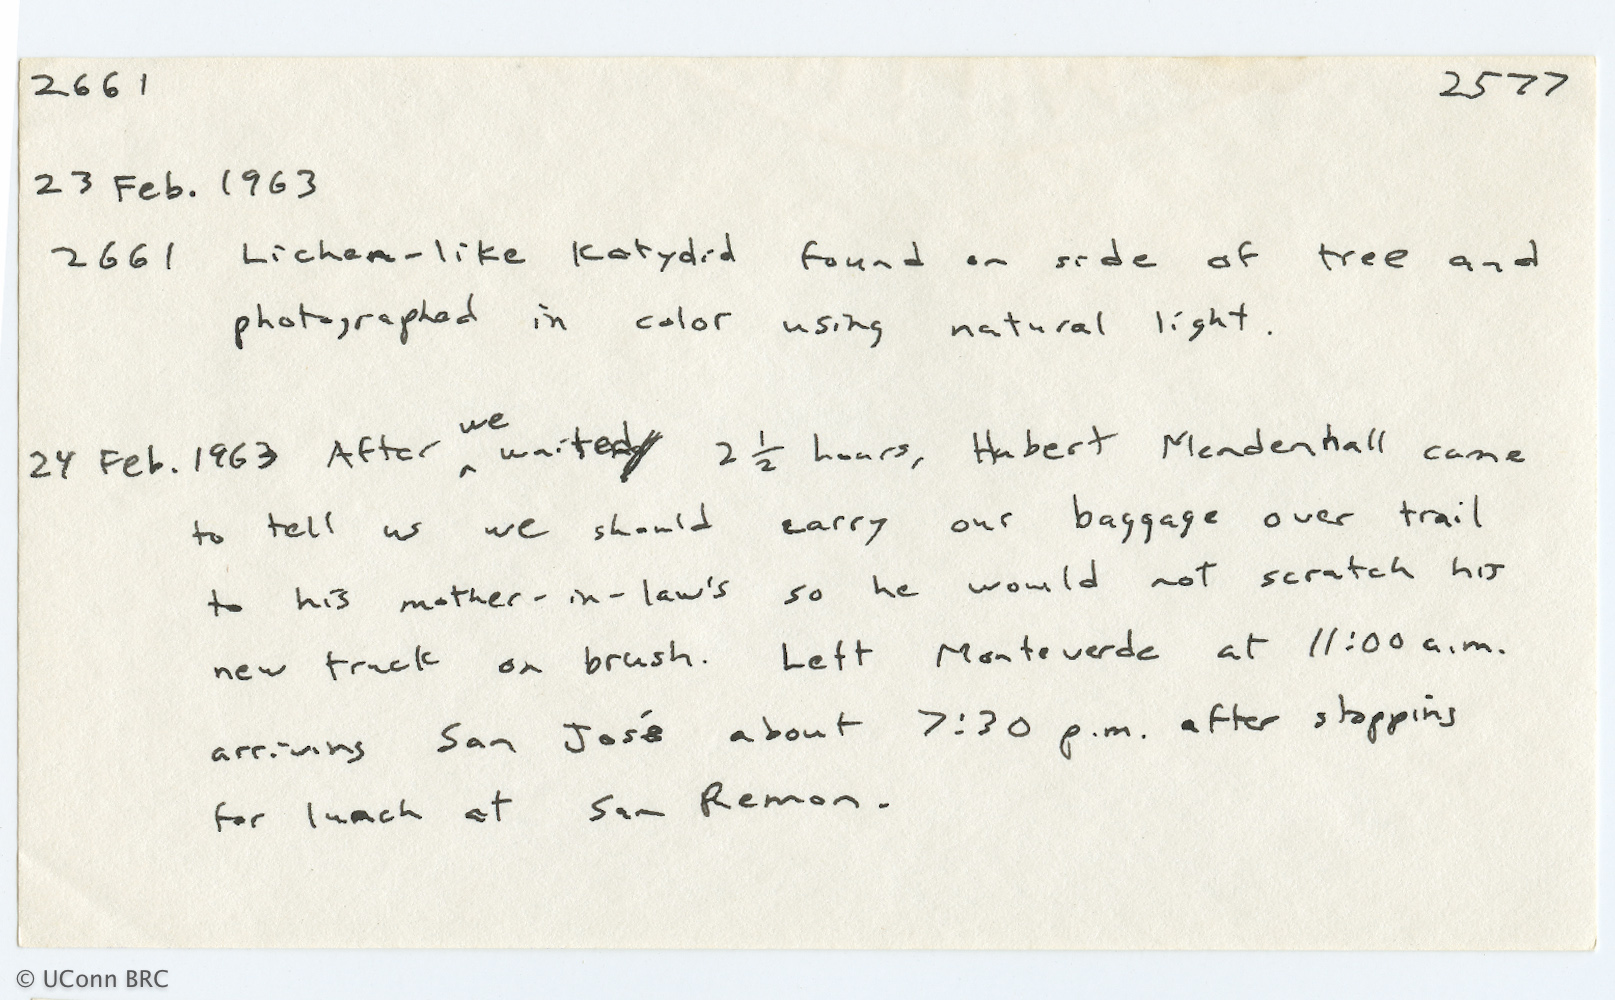 2661 2577
23 Feb. 1963
2661 Lichen-like Katydid found on side of tree and
photographed in color using natural light.
24 Feb. 1963 After we waited 2 1/2 hours, Hubert Mendenhall came
to tell us we should carry our baggage over trail
to his mother-in-law's so he would not scratch his
new truck on brush. Left Monteverde at 11:00 a.m.
arriving San José about 7:30 p.m. after stopping
for lunch at San Remon.
© UConn BRC